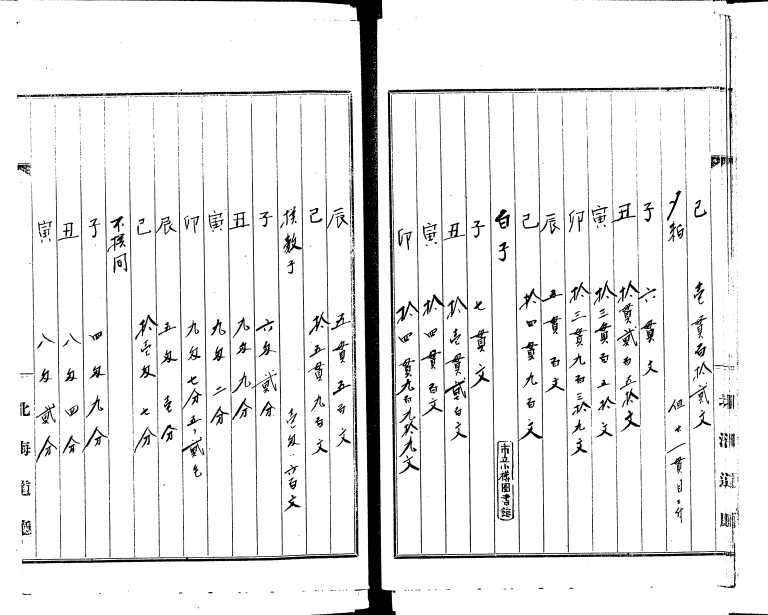 巳 壱貫百拾弐文
〆粕 但廿一貫目〻斤
子 六貫文
丑 拾貫弐百五拾文
寅 拾三貫百五拾文
卯 拾三貫九百三拾九文
辰 五貫百文
巳 拾四貫九百文
市立小樽図書館
白子
子 七貫文
丑 拾壱貫弐百文
寅 拾四貫百文
卯 拾四貫九百九拾九文
辰 五貫五百文
巳 拾五貫九百文
撰数子 壱匁〻六百文
子 六匁弐分
丑 九匁九分
寅 九匁二分
卯 九匁七分五〻弐毛
辰 五匁壱分
巳 拾壱匁七分
不撰同
子 四匁九分
丑 八匁四分
寅 八匁弐分
北海道廳